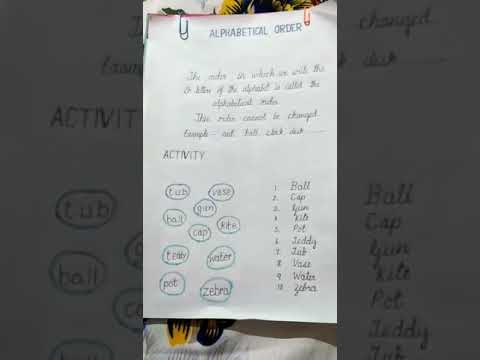 ALPHABETICAL ORDER
The order in which we write the
letters of the alphabet is called the
alphabetical order.
This order cannot be changed.
Example - ant, ball, clock, desk
ACTIVITY
tub
vase
gun
ball
kite
cap
teddy
water
pot
zebra
1. Ball
2. Cap
3. Gun
4. Kite
5. Pot
6. Teddy
7. Tub
8. Vase
9. Water
10. Zebra